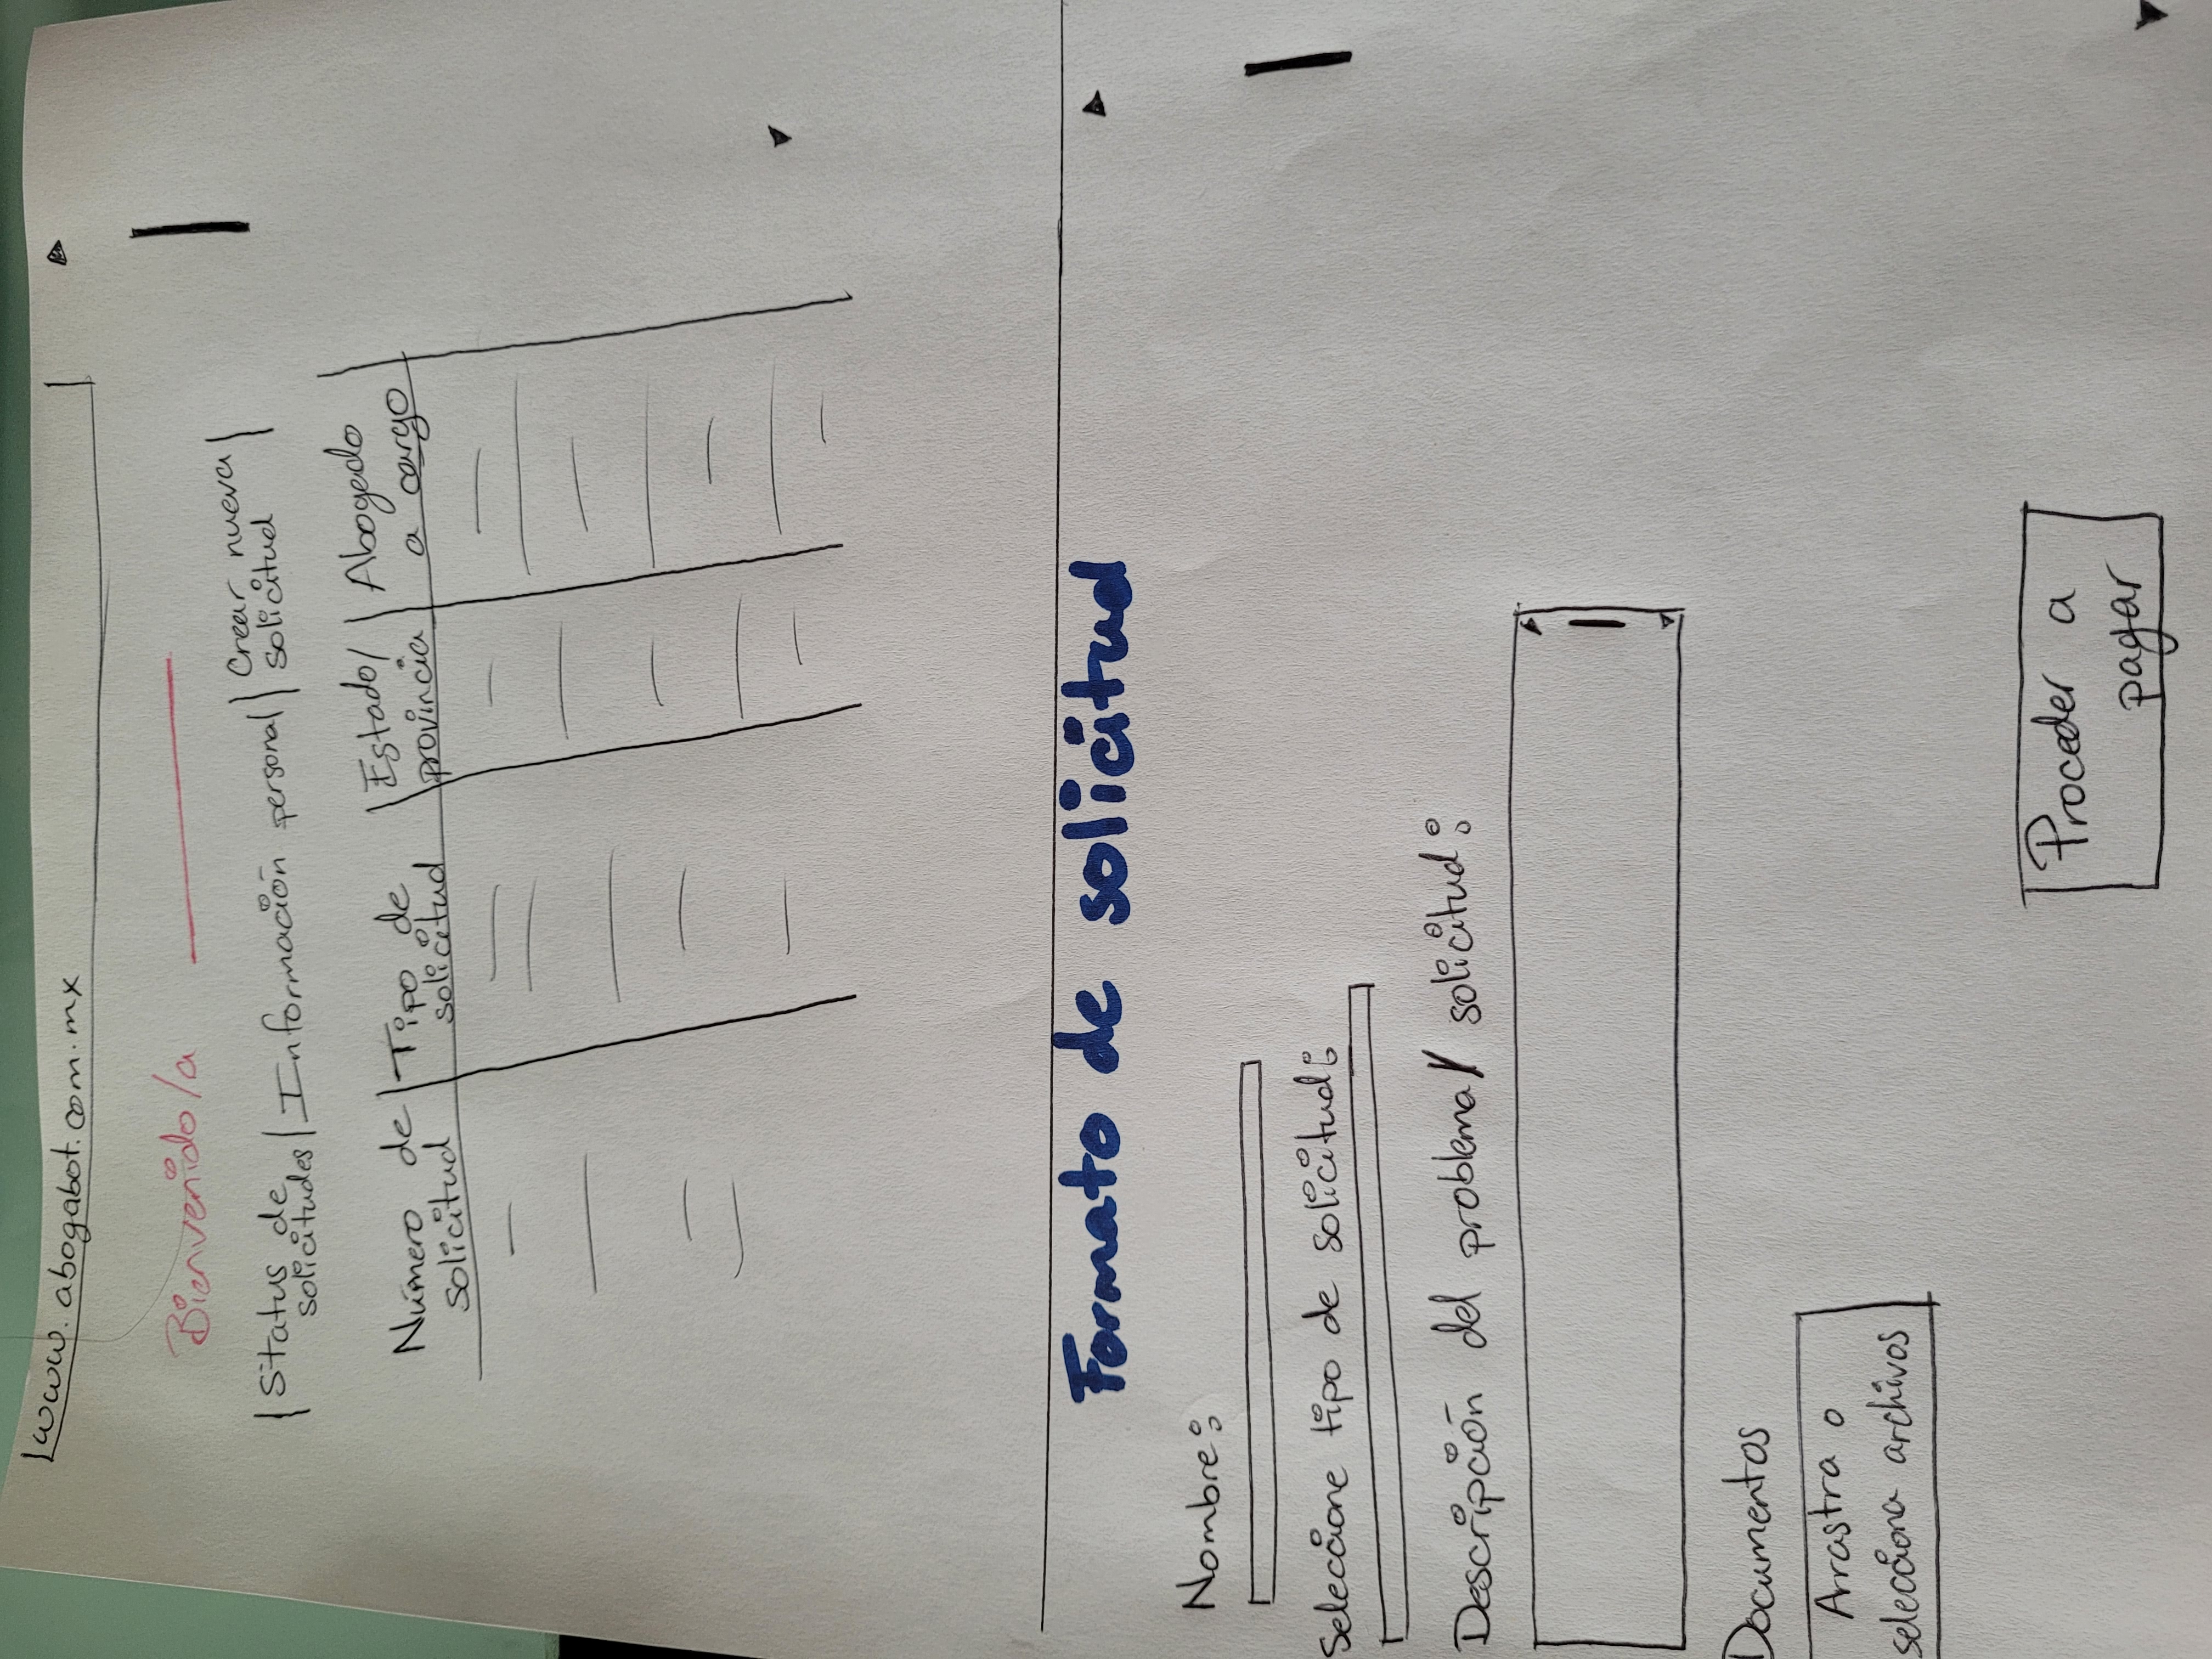 www.abogabot.com.mx
Bienvenido/a
Status de solicitudes
Información personal
Crear nueva solicitud
Número de solicitud
Tipo de solicitud
Estado/ provincia
Abogado a cargo
Formato de solicitud
Nombre:
Seleccione tipo de solicitud:
Descripción del problema/ solicitud:
Documentos
Arrastra o
selecciona archivos
Proceder a
pagar